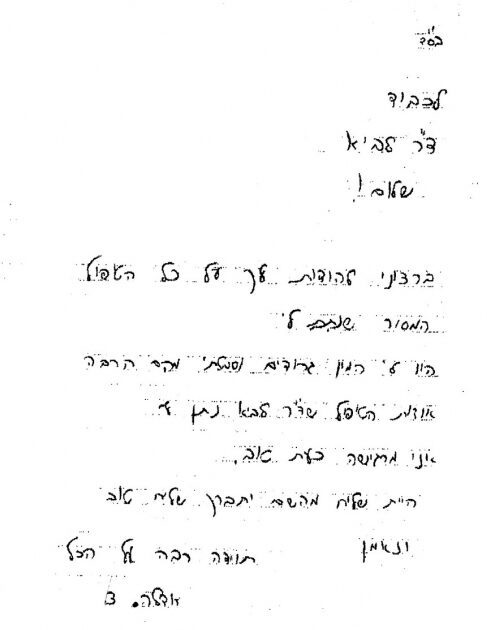 בס"ד
לכביד
ד"ר לביא
שלום!
ברצוני להודות לך על כל הטיפול
המסור שנתת לי
היו לי המון גרודים וסבלתי מהם הרבה
אודות הטיפול שד"ר לביא נתן לי
אני מרגישה כעת טוב.
היית שליח מהשם יתברך שליח טוב
ונאמן
תודה רבה על הכל
ב.